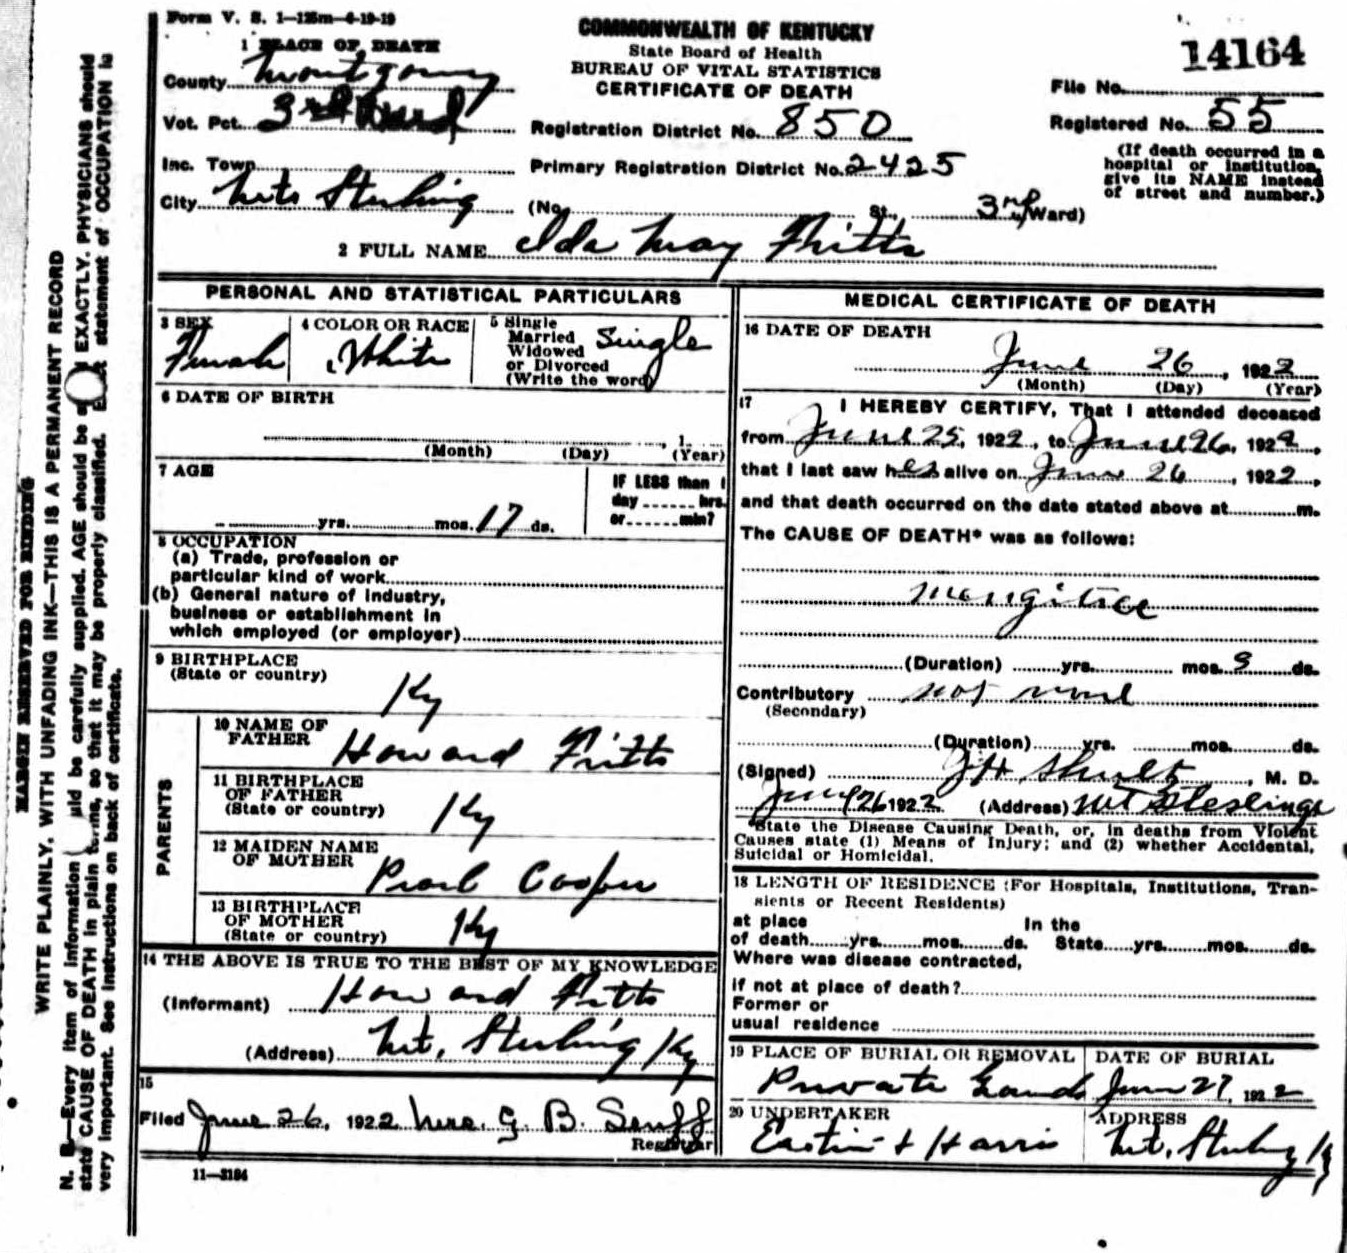 Form V. S. 1—125m—6-19-19
COMMONWEALTH OF KENTUCKY
State Board of Health
BUREAU OF VITAL STATISTICS
CERTIFICATE OF DEATH
14164
File No.
Registered No. 55
(If death occurred in a
hospital or institution,
give its NAME instead
of street and number.)
1 PLACE OF DEATH
County Montgomery
Vot. Pct. 3rd Ward
Inc. Town
City Mt. Sterling
Registration District No. 850
Primary Registration District No. 2425
(No. St., 3rd Ward)
2 FULL NAME Ida May Fritts
PERSONAL AND STATISTICAL PARTICULARS
3 SEX
Female
4 COLOR OR RACE
White
5 Single
Married
Widowed
or Divorced
(Write the word)
Single
6 DATE OF BIRTH
, 1
(Month) (Day) (Year)
7 AGE
yrs. mos. 17 ds.
IF LESS than 1
day hrs.
or min?
8 OCCUPATION
(a) Trade, profession or
particular kind of work
(b) General nature of industry,
business or establishment in
which employed (or employer)
9 BIRTHPLACE
(State or country)
Ky
PARENTS
10 NAME OF
FATHER
Howard Fritts
11 BIRTHPLACE
OF FATHER
(State or country)
Ky
12 MAIDEN NAME
OF MOTHER
Pearl Cooper
13 BIRTHPLACE
OF MOTHER
(State or country)
Ky
14 THE ABOVE IS TRUE TO THE BEST OF MY KNOWLEDGE
(Informant) Howard Fritts
(Address) Mt. Sterling Ky
15
Filed June 26, 1922 Mrs. G. B. Senff
Registrar
11—3184
MEDICAL CERTIFICATE OF DEATH
16 DATE OF DEATH
June 26, 1922
(Month) (Day) (Year)
17 I HEREBY CERTIFY, That I attended deceased
from June 25, 1922, to June 26, 1922,
that I last saw her alive on June 26, 1922,
and that death occurred on the date stated above at m.
The CAUSE OF DEATH* was as follows:
(Duration) yrs. mos. ds.
Contributory
(Secondary)
(Duration) yrs. mos. ds.
(Signed) Shultz, M. D.
June 26 1922. (Address) Mt Sterling
*State the Disease Causing Death, or, in deaths from Violent
Causes state (1) Means of Injury; and (2) whether Accidental,
Suicidal or Homicidal.
18 LENGTH OF RESIDENCE (For Hospitals, Institutions, Tran-
sients or Recent Residents)
at place In the
of death yrs. mos. ds. State yrs. mos. ds.
Where was disease contracted,
if not at place of death?
Former or
usual residence
19 PLACE OF BURIAL OR REMOVAL
Private
DATE OF BURIAL
June 27, 1922
20 UNDERTAKER
Eastin & Harris
ADDRESS
Mt. Sterling Ky
MARGIN RESERVED FOR BINDING
WRITE PLAINLY, WITH UNFADING INK—THIS IS A PERMANENT RECORD
N. B.—Every item of information should be carefully supplied. AGE should be EXACTLY. PHYSICIANS should
state CAUSE OF DEATH in plain terms, so that it may be properly classified. Exact statement of OCCUPATION is
very important. See instructions on back of certificate.